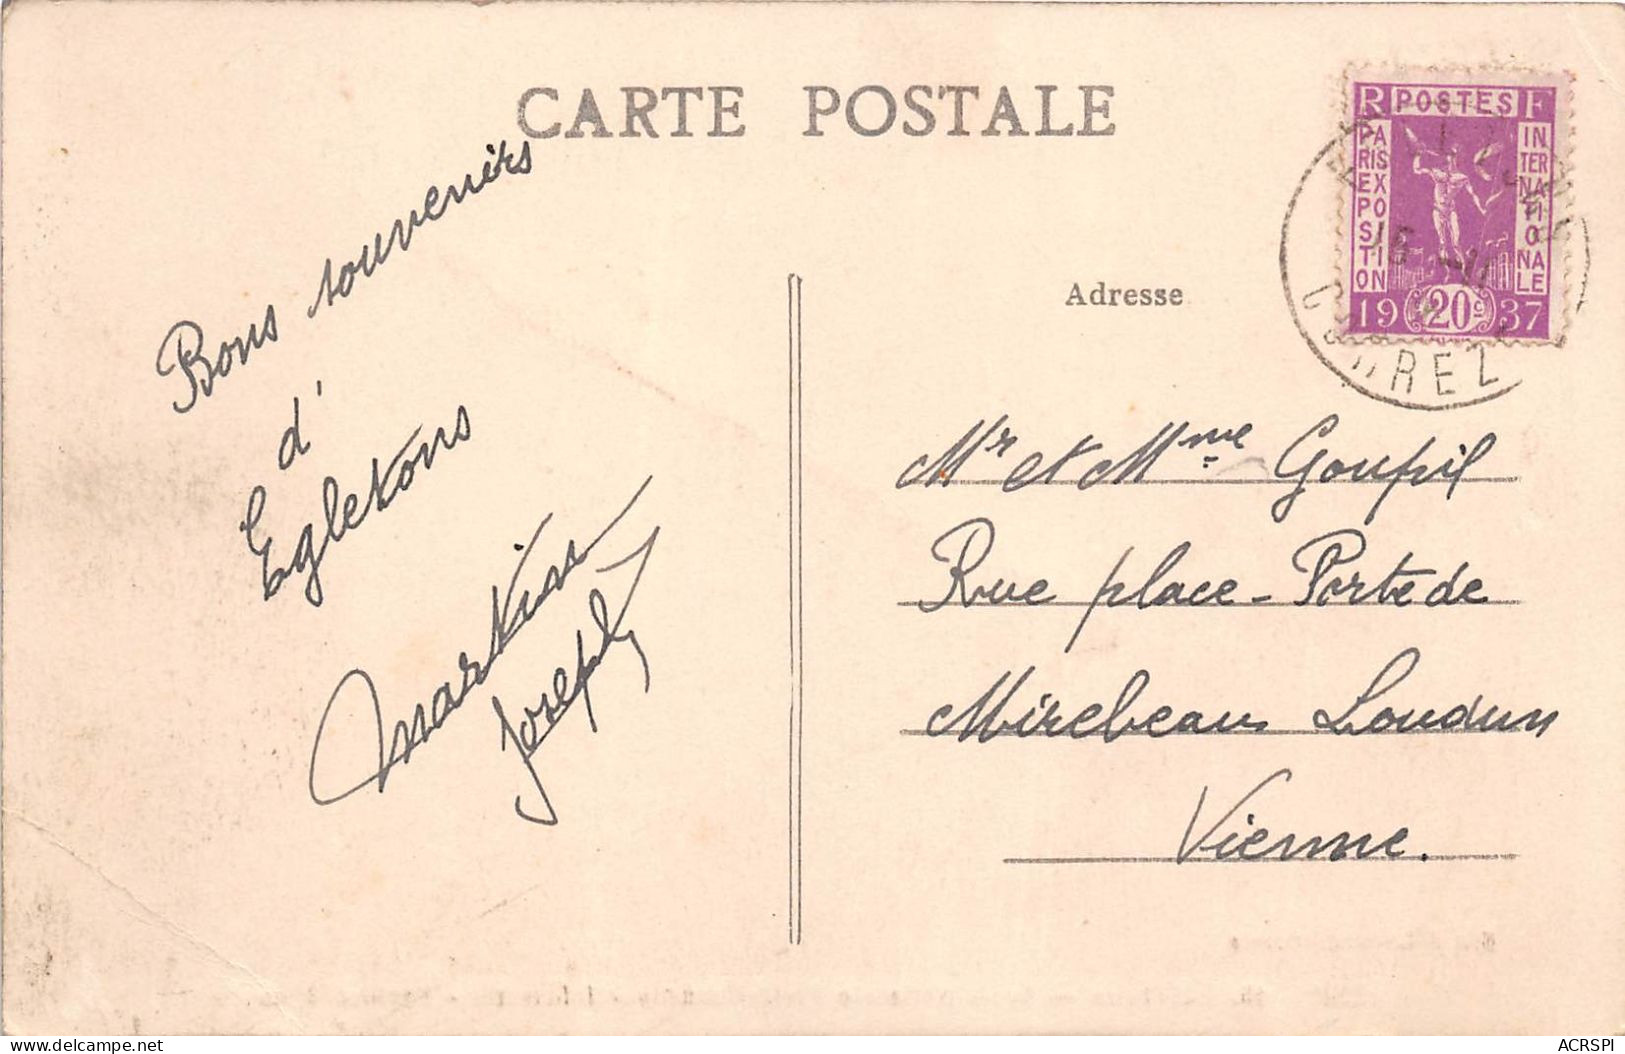 CARTE POSTALE
Bons souvenirs
d'
Egletons
Joseph
Adresse
RF POSTES
PARIS EXPOSITION
INTERNATIONALE
1937
20c
16 -11
CORREZ
Mr et Mme Goupil
Rue place - Porte de
Mirebeau Loudun
Vienne.
delcampe.net
ACRSPI